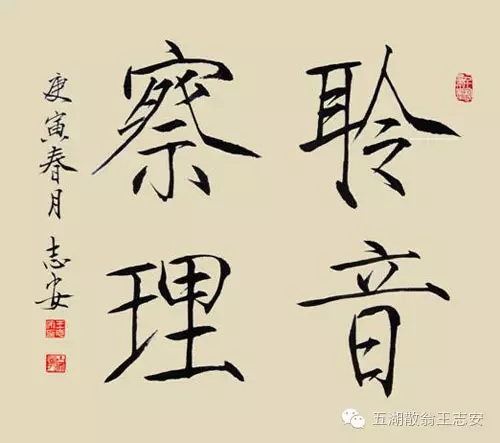 聆音
察理
庚寅春月 志安
五湖散翁王志安